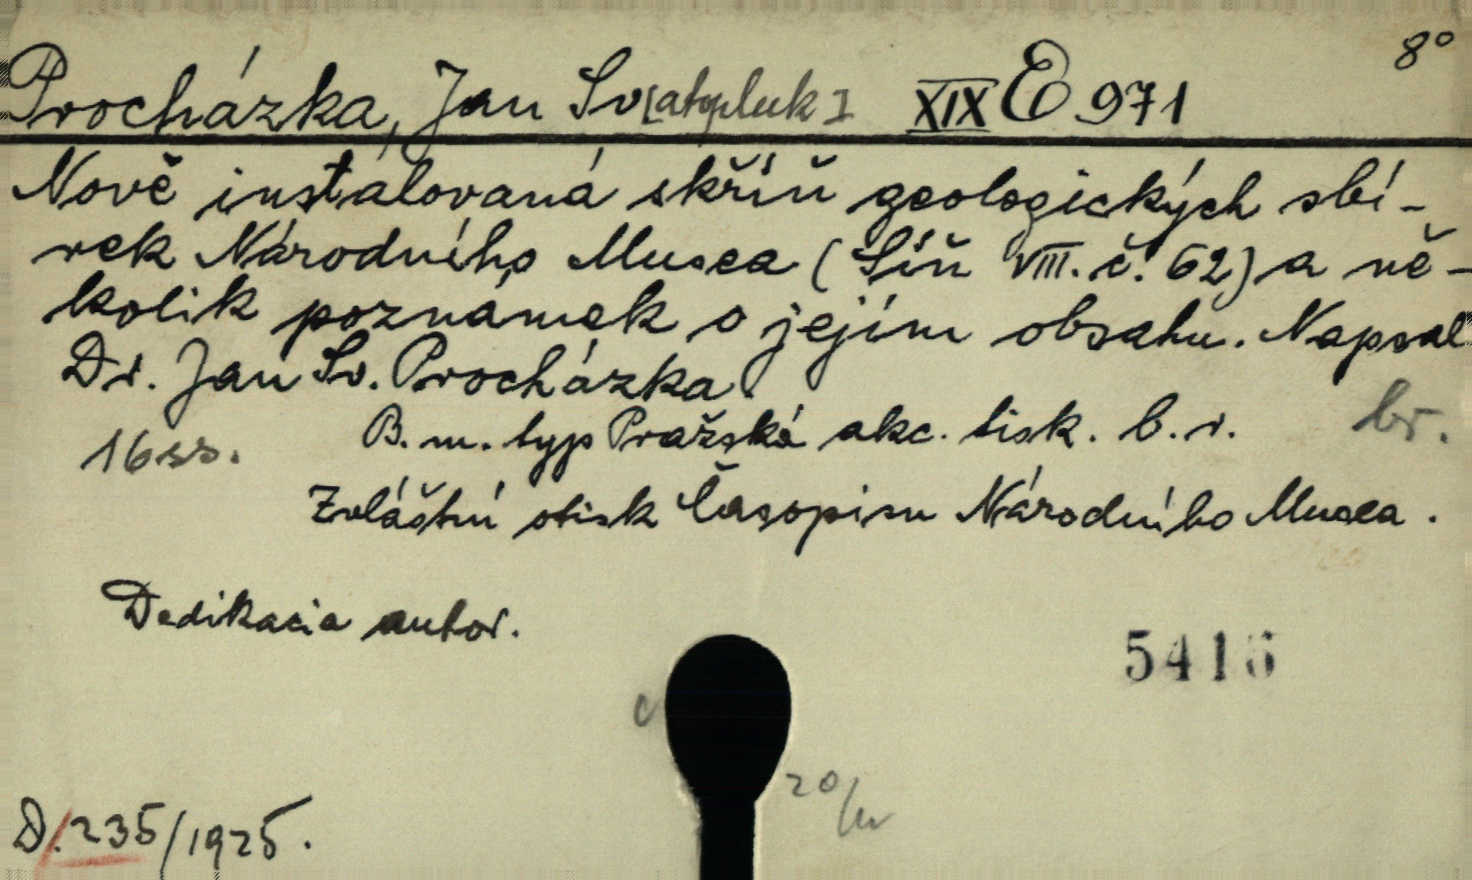 8°
Procházka, Jan Sv[atopluk] XIX E 971
Nově instalovaná skříň geologických sbí-
rek Národního Musea (Síň VIII. č. 62) a ně-
kolik poznámek o jejím obsahu. Napsal
Dr. Jan Sv. Procházka.
16 ss. B. m. typ Pražská akc. tisk. b. r. br.
Zvláštní otisk Časopisu Národního Musea.
Dedikacia autor.
5416
c
20/
D. 235/1925.